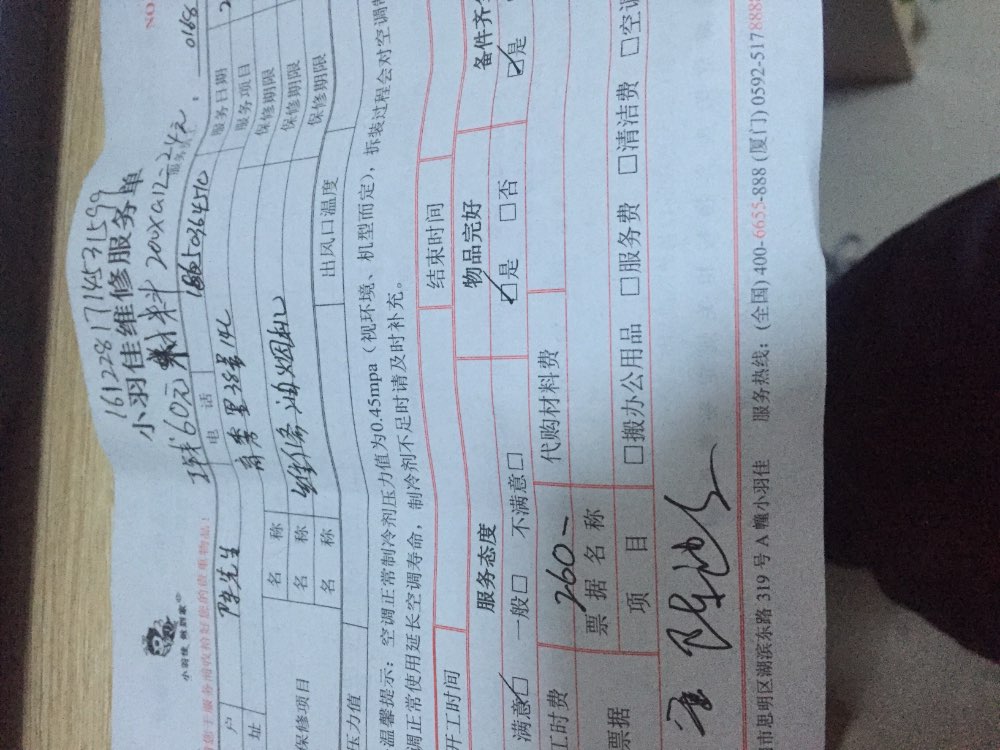 NO
1612281714531599
小羽佳维修服务单
小羽佳,
200X0.12=24元
0168
服务前收拾好您的贵重物品!
户
陈先生
电 话
18650264510
服务日期
址
服务项目
名 称
保修期限
保修项目
名 称
维修油烟机
保修期限
名 称
保修期限
压力值
出风口温度
温馨提示:空调正常制冷剂压力值为0.45mpa(视环境、机型而定),拆装过程会对空调制
调正常使用延长空调寿命,制冷剂不足时请及时补充。
开工时间
结束时间
服务态度
物品完好
备件齐全
满意☑ 一般□ 不满意□
☑是 □否
☑是
工时费
260-
代购材料费
票据
票据名称
项 目
□搬办公用品 □服务费 □清洁费 □空调
市思明区湖滨东路 319 号 A 幢小羽佳 服务热线:(全国) 400-6655-888 (厦门) 0592-5178888